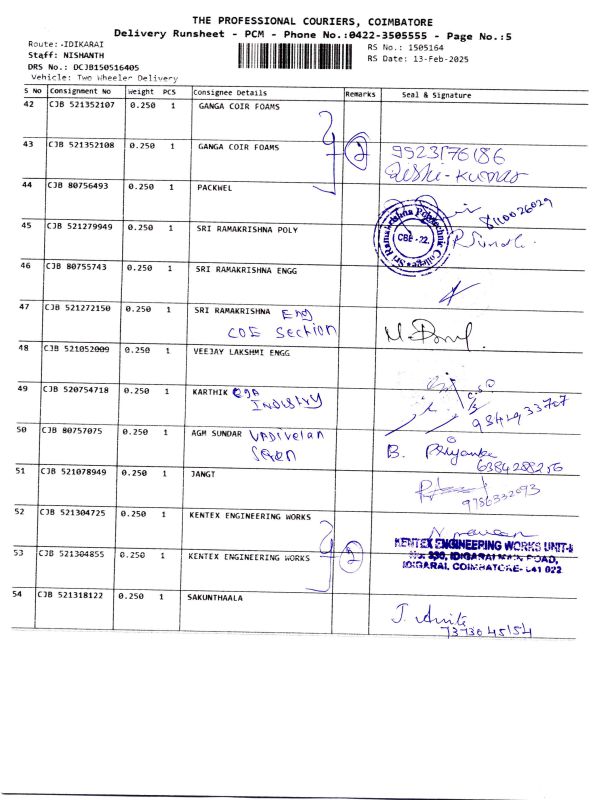 THE PROFESSIONAL COURIERS, COIMBATORE
Delivery Runsheet - PCM - Phone No.:0422-3505555 - Page No.:5
Route:-IDIKARAI
RS No.: 1505164
Staff: NISHANTH
RS Date: 13-Feb-2025
DRS No.: DCJB150516405
Vehicle: Two Wheeler Delivery
S No Consignment No Weight PCS Consignee Details Remarks Seal & Signature
42 CJB 521352107 0.250 1 GANGA COIR FOAMS
43 CJB 521352108 0.250 1 GANGA COIR FOAMS 2 9923176186
44 CJB 80756493 0.250 1 PACKWEL
8110026029
45 CJB 521279949 0.250 1 SRI RAMAKRISHNA POLY
Sri Ramakrishna Polytechnic College
CBE - 22.
46 CJB 80755743 0.250 1 SRI RAMAKRISHNA ENGG
47 CJB 521272150 0.250 1 SRI RAMAKRISHNA Eng
COE Section
48 CJB 521052009 0.250 1 VEEJAY LAKSHMI ENGG
49 CJB 520754718 0.250 1 KARTHIK
INDUSTRY
50 CJB 80757075 0.250 1 AGM SUNDAR Vadivelan
B. Priyanka
6384288256
51 CJB 521078949 0.250 1 JANGT
9786332093
52 CJB 521304725 0.250 1 KENTEX ENGINEERING WORKS
53 CJB 521304855 0.250 1 KENTEX ENGINEERING WORKS 2
KENTEX ENGINEERING WORKS UNIT-I
No. 330, IDIGARAI MAIN ROAD,
IDIGARAI, COIMBATORE- 641 022
54 CJB 521318122 0.250 1 SAKUNTHAALA
J. Anita
7373045154